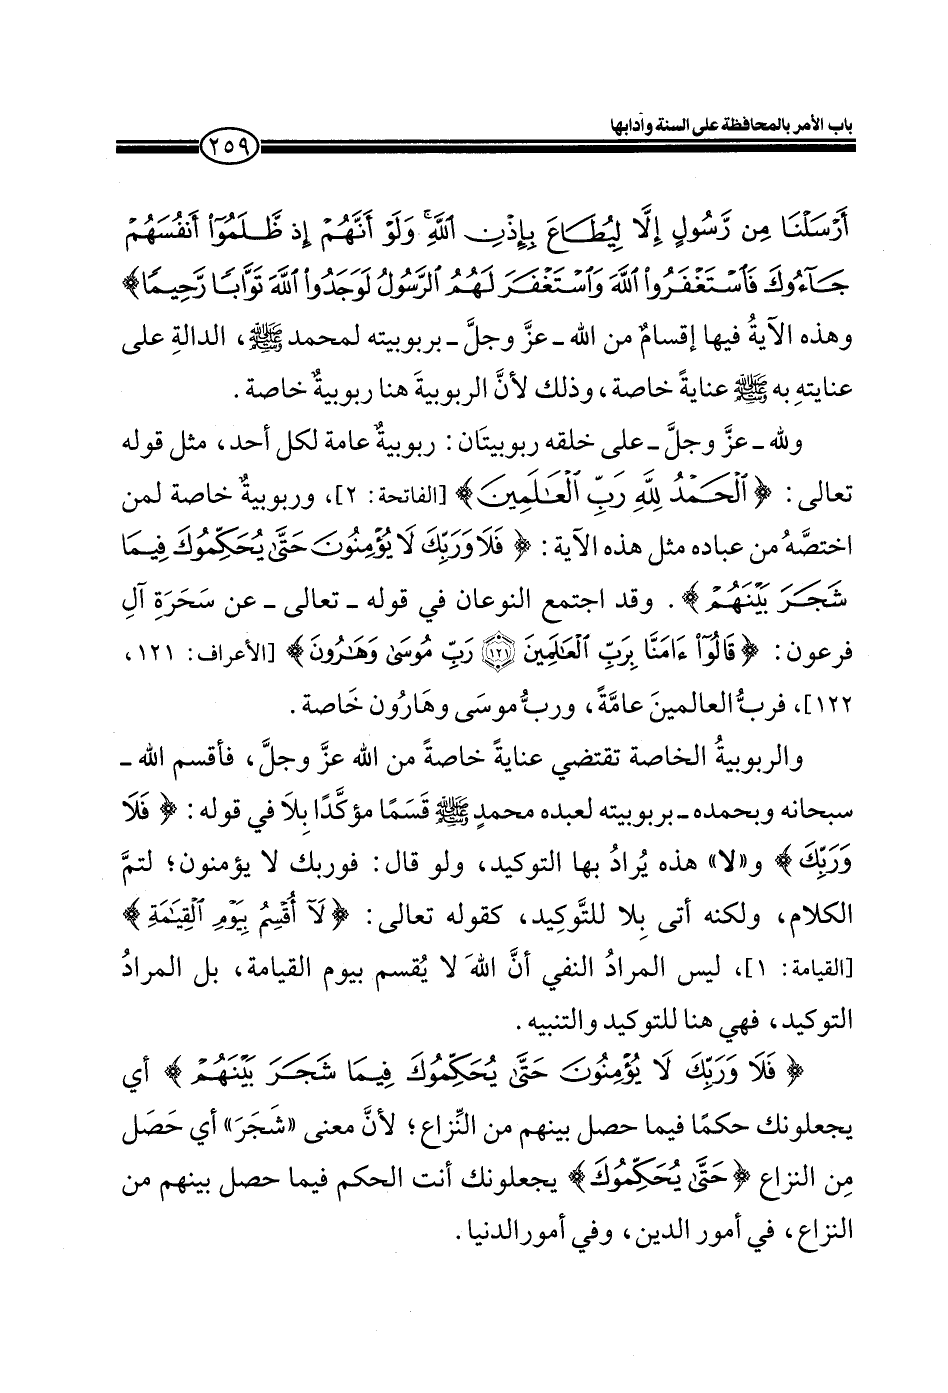 باب الأمر بالمحافظة على السنة وآدابها
٢٥٩
أَرْسَلْنَا مِن رَّسُولٍ إِلَّا لِيُطَاعَ بِإِذْنِ ٱللَّهِ ۚ وَلَوْ أَنَّهُمْ إِذ ظَّلَمُوٓا۟ أَنفُسَهُمْ
جَآءُوكَ فَٱسْتَغْفَرُوا۟ ٱللَّهَ وَٱسْتَغْفَرَ لَهُمُ ٱلرَّسُولُ لَوَجَدُوا۟ ٱللَّهَ تَوَّابًا رَّحِيمًا﴾
وهذه الآيةُ فيها إقسامٌ من الله ـ عزَّ وجلَّ ـ بربوبيته لمحمد ﷺ، الدالةِ على
عنايتهِ به ﷺ عنايةً خاصة، وذلك لأنَّ الربوبيةَ هنا ربوبيةٌ خاصة.
ولله ـ عزَّ وجلَّ ـ على خلقه ربوبيتَان: ربوبيةٌ عامة لكل أحد، مثل قوله
تعالى: ﴿ٱلْحَمْدُ لِلَّهِ رَبِّ ٱلْعَـٰلَمِينَ﴾ [الفاتحة: ٢]، وربوبيةٌ خاصة لمن
اختصَّهُ من عباده مثل هذه الآية: ﴿فَلَا وَرَبِّكَ لَا يُؤْمِنُونَ حَتَّىٰ يُحَكِّمُوكَ فِيمَا
شَجَرَ بَيْنَهُمْ﴾. وقد اجتمع النوعان في قوله ـ تعالى ـ عن سَحَرَةِ آلِ
فرعون: ﴿قَالُوٓا۟ ءَامَنَّا بِرَبِّ ٱلْعَـٰلَمِينَ ۝١٢١ رَبِّ مُوسَىٰ وَهَـٰرُونَ﴾ [الأعراف: ١٢١،
١٢٢]، فربُّ العالمينَ عامَّةً، وربُّ موسَى وهَارُون خَاصة.
والربوبيةُ الخاصة تقتضي عنايةً خاصةً من الله عزَّ وجلَّ، فأقسم الله ـ
سبحانه وبحمده ـ بربوبيته لعبده محمدٍ ﷺ قَسَمًا مؤكَّدًا بِلَا في قوله: ﴿فَلَا
وَرَبِّكَ﴾ و«لا» هذه يُرادُ بها التوكيد، ولو قال: فوربك لا يؤمنون؛ لتمَّ
الكلام، ولكنه أتى بِلا للتَّوكِيد، كقوله تعالى: ﴿لَآ أُقْسِمُ بِيَوْمِ ٱلْقِيَـٰمَةِ﴾
[القيامة: ١]، ليس المرادُ النفي أنَّ اللهَ لا يُقسم بيوم القيامة، بل المرادُ
التوكيد، فهي هنا للتوكيد والتنبيه.
﴿فَلَا وَرَبِّكَ لَا يُؤْمِنُونَ حَتَّىٰ يُحَكِّمُوكَ فِيمَا شَجَرَ بَيْنَهُمْ﴾ أي
يجعلونك حكمًا فيما حصل بينهم من النِّزاع؛ لأنَّ معنى «شَجَرَ» أي حَصَل
مِن النزاع ﴿حَتَّىٰ يُحَكِّمُوكَ﴾ يجعلونك أنت الحكم فيما حصل بينهم من
النزاع، في أمور الدين، وفي أمور الدنيا.